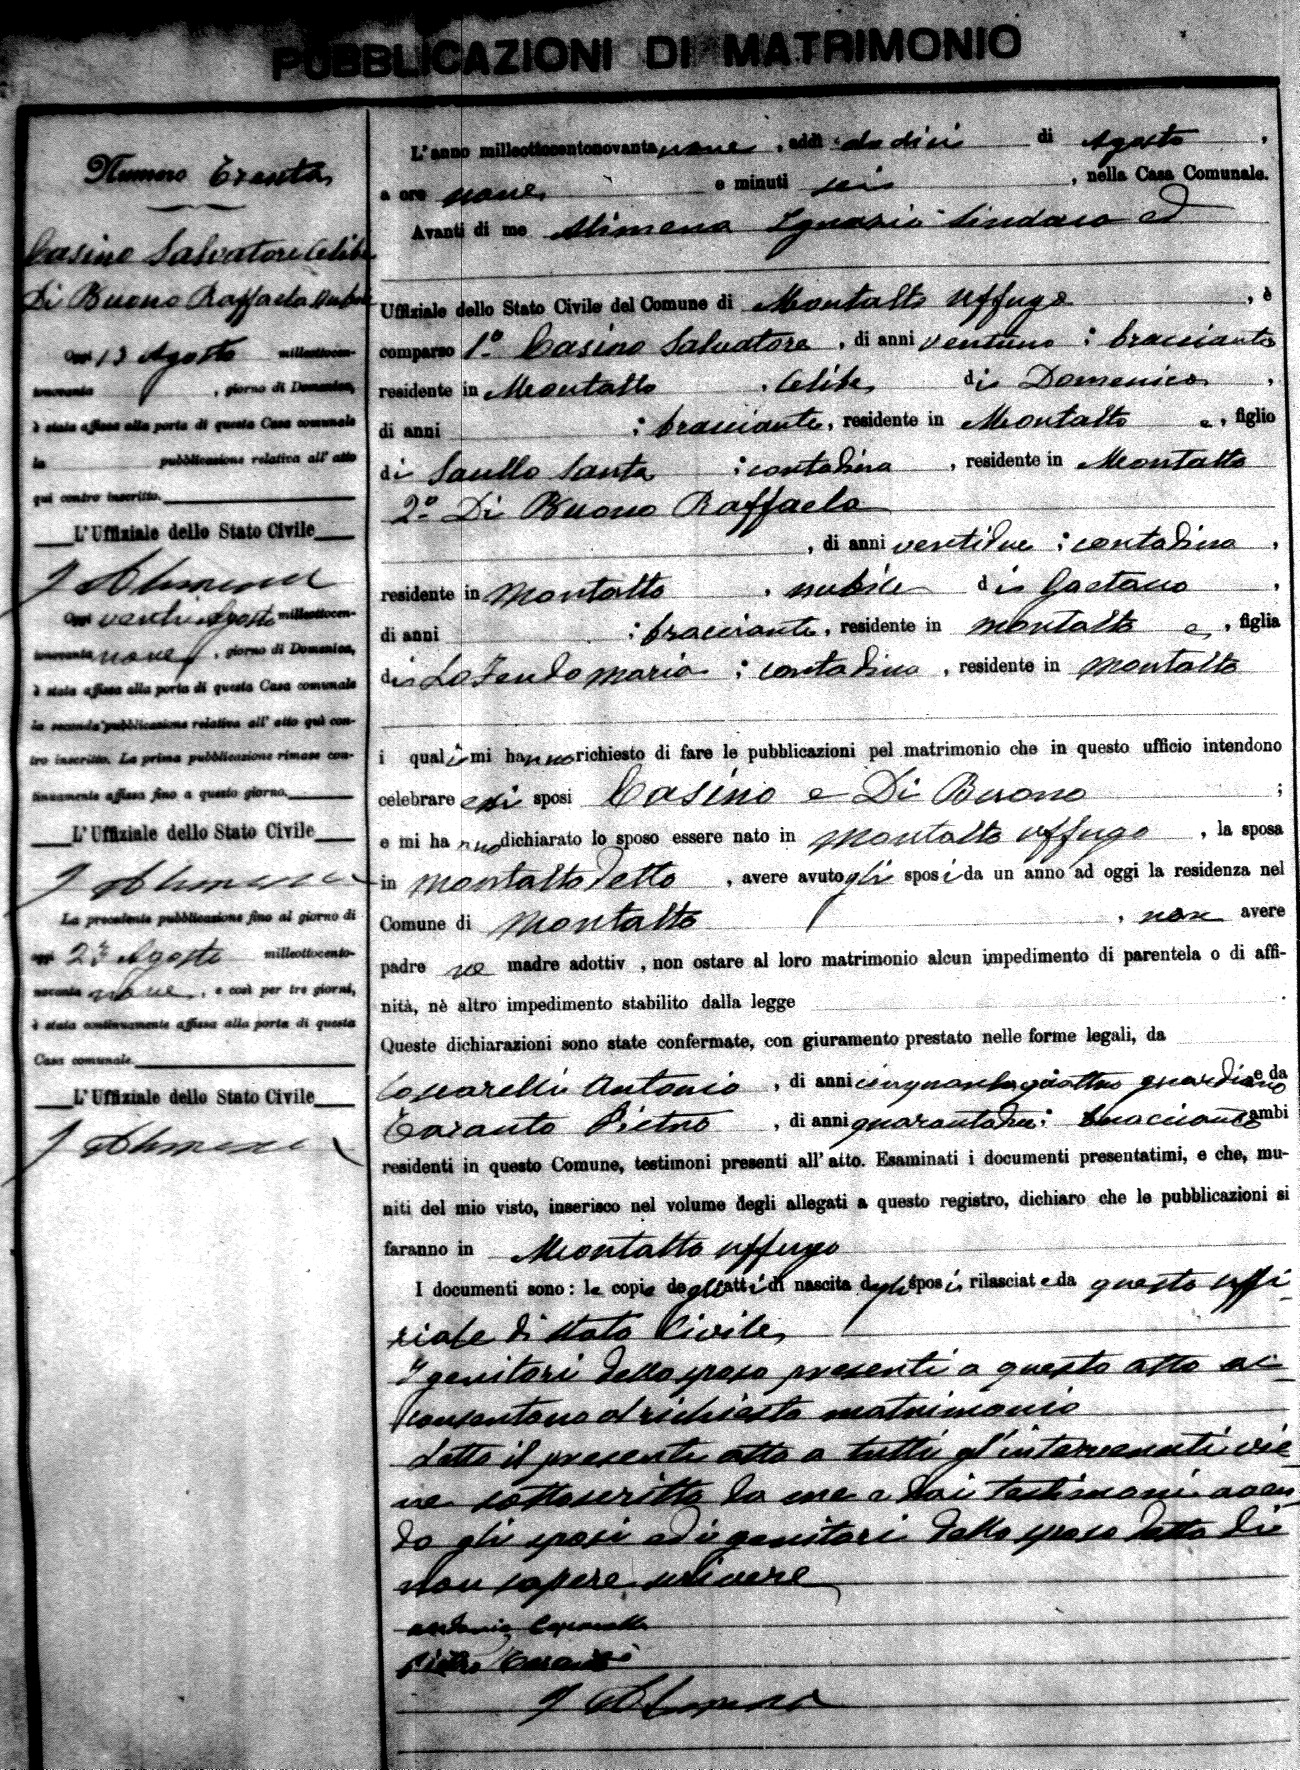 PUBBLICAZIONI DI MATRIMONIO
Numero Trenta
Casino Salvatore celibe
Di Buono Raffaela nubile
Oggi 13 Agosto milleottocen-
tonovanta , giorno di Domenica,
è stata affissa alla porta di questa Casa comunale
la pubblicazione relativa all' atto
qui contro inscritto.
L'Uffiziale dello Stato Civile
I Alimena
Oggi venti Agosto milleottocen-
tonovanta nove , giorno di Domenica,
è stata affissa alla porta di questa Casa comunale
la seconda pubblicazione relativa all' atto quì con-
tro inscritto. La prima pubblicazione rimase con-
tinuamente affissa fino a questo giorno.
L'Uffiziale dello Stato Civile
I Alimena
La precedente pubblicazione fino al giorno di
oggi 23 Agosto milleottocento-
novanta nove , e così per tre giorni,
è stata continuamente affissa alla porta di questa
Casa comunale.
L'Uffiziale dello Stato Civile
I Alimena
L'anno milleottocentonovanta nove , addì dodici di Agosto ,
a ore nove e minuti sei , nella Casa Comunale.
Avanti di me Alimena Ignazio Sindaco ed
Uffiziale dello Stato Civile del Comune di Montalto Uffugo , è
comparso 1º Casino Salvatore , di anni ventuno ; bracciante
residente in Montalto , celibe di Domenico ,
di anni ; bracciante , residente in Montalto e , figlio
di Saullo Santa ; contadina , residente in Montalto
2º Di Buono Raffaela
, di anni ventidue ; contadina ,
residente in Montalto , nubile di Gaetano ,
di anni ; bracciante , residente in Montalto e , figlia
di Lo Feudo Maria ; contadina , residente in Montalto
i quali mi hanno richiesto di fare le pubblicazioni pel matrimonio che in questo ufficio intendono
celebrare essi sposi Casino e Di Buono ;
e mi hanno dichiarato lo sposo essere nato in Montalto Uffugo , la sposa
in Montalto detto , avere avuto gli sposi da un anno ad oggi la residenza nel
Comune di Montalto , non avere
padre ne madre adottiv , non ostare al loro matrimonio alcun impedimento di parentela o di affi-
nità, nè altro impedimento stabilito dalla legge .
Queste dichiarazioni sono state confermate, con giuramento prestato nelle forme legali, da
Antonio , di anni cinquantaquattro guardiano e da
Taranto Pietro , di anni quarantadue ; bracciante ambi
residenti in questo Comune, testimoni presenti all' atto. Esaminati i documenti presentatimi, e che, mu-
niti del mio visto, inserisco nel volume degli allegati a questo registro, dichiaro che le pubblicazioni si
faranno in Montalto Uffugo
I documenti sono: le copie degli atti di nascita degli sposi rilasciate da questo uffi
ziale di stato Civile,
I genitori dello sposo presenti a questo atto ac
consentono al richiesto matrimonio
Letto il presente atto a tutti gl'intervenuti vie
ne sottoscritto da me e dai testimoni aven
do gli sposi ed i genitori dello sposo detto di
non sapere scrivere
Antonio
Pietro Taranto
I Alimena